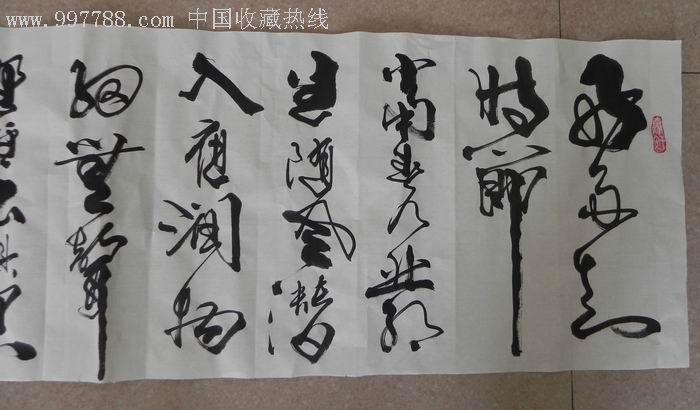 www.997788.com 中国收藏热线
好雨知
時節
當春乃發
生隨風潛
入夜潤物
細無聲